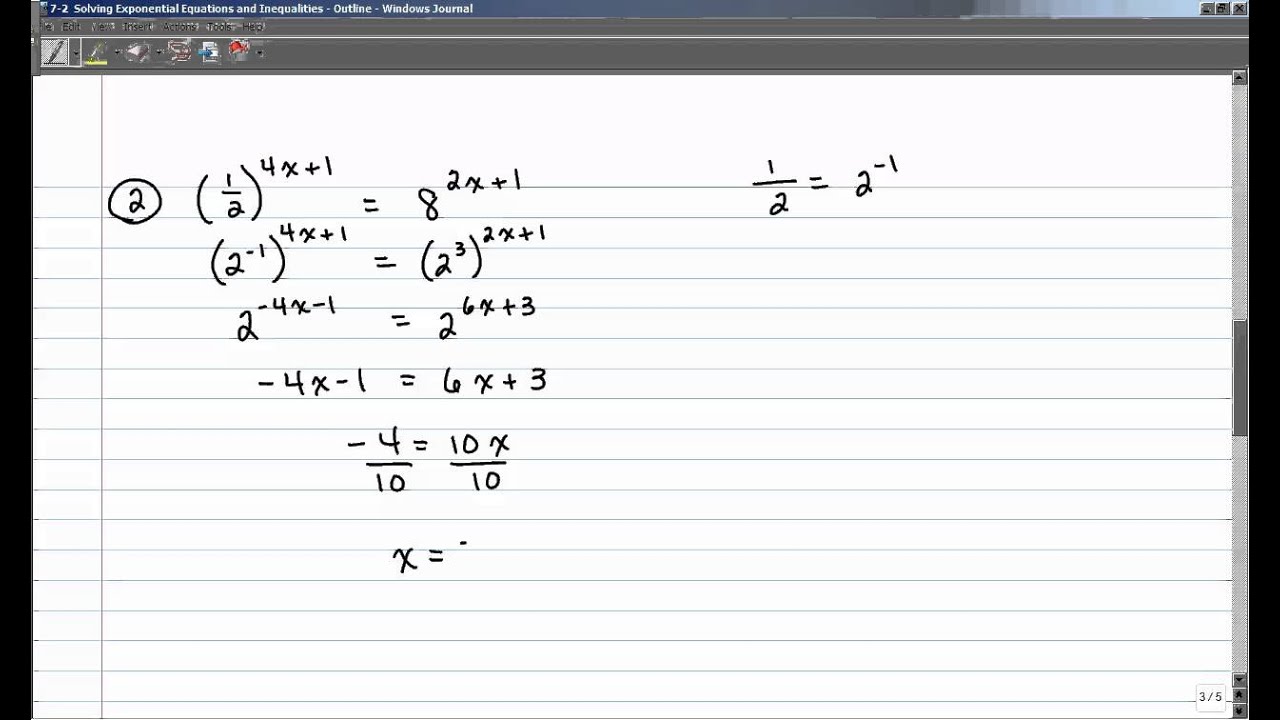 7-2 Solving Exponential Equations and Inequalities - Outline - Windows Journal
Edit View Insert Actions Tools Help
② (1/2)^(4x+1) = 8^(2x+1)
1/2 = 2^(-1)
(2^(-1))^(4x+1) = (2^3)^(2x+1)
2^(-4x-1) = 2^(6x+3)
-4x-1 = 6x+3
-4/10 = 10x/10
x = -
3/5